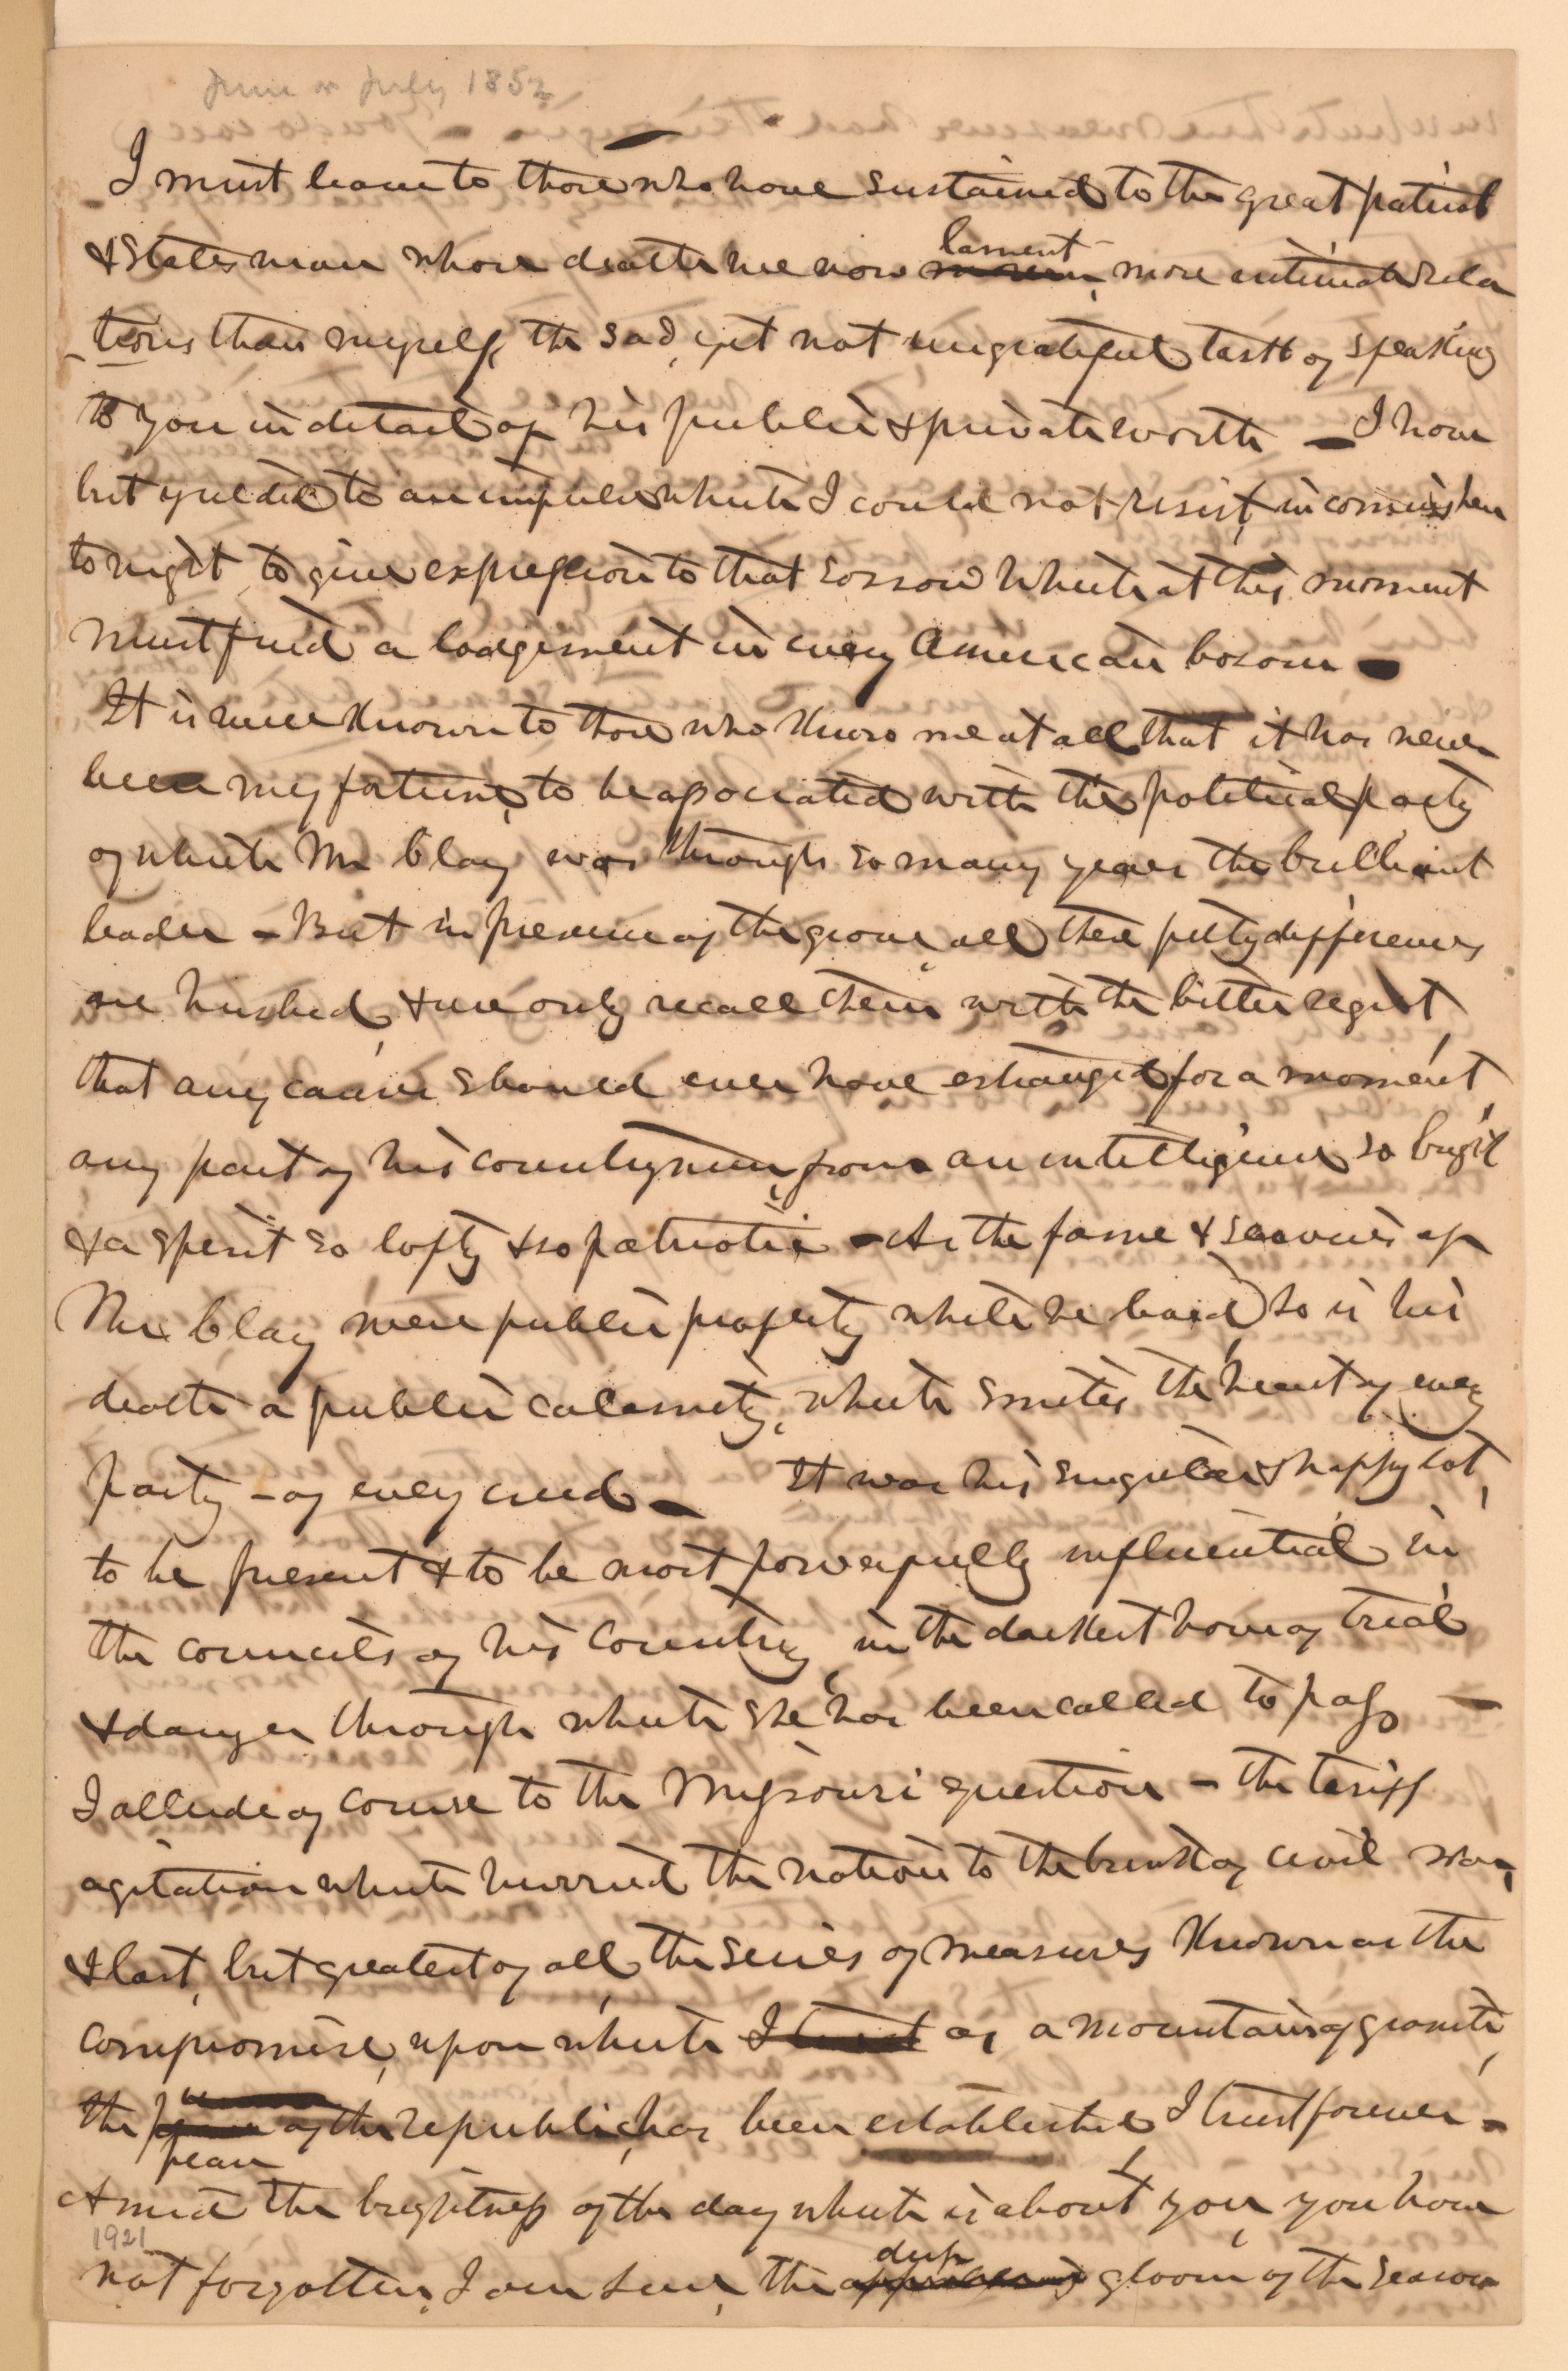 June or July 1852
I must leave to those who have sustained to the great patriot
& statesman whose death we now lament more intimate rela
-tions than myself, the sad, yet not ungrateful task of speaking
to you in detail of his public & private worth — I have
but yielded to an impulse which I could not resist, in coming here
to night to give expression to that sorrow which at this moment
must find a lodgement in every American bosom —
It is well known to those who know me at all that it has never
been my fortune, to be associated with the political party
of which Mr Clay was through so many years the brilliant
leader — But in presence of the grave, all these petty differences
are hushed, & we only recall them with the bitter regret,
that any cause should ever have estranged for a moment,
any part of his countrymen, from an intelligence so bright
& a spirit so lofty & so patriotic — As the fame & services of
Mr. Clay were public property while he lived, so is his
death a public calamity, which smites the heart of every
party — of every creed — It was his singular & happy lot,
to be present & to be most powerfully influential in
the councils of his country, in the darkest hour of trial
& danger through which she has been called to pass —
I allude of course to the Missouri question — the tariff
agitation which hurried the nation to the brink of civil war,
& last, but greatest of all, the series of measures known as the
compromise, upon which I trust as a mountain of granite,
the peace of the republic, has been established I trust forever —
Amid the brightness of the day which is about you, you have
1921
not forgotten, I am sure, the deep gloom of the season